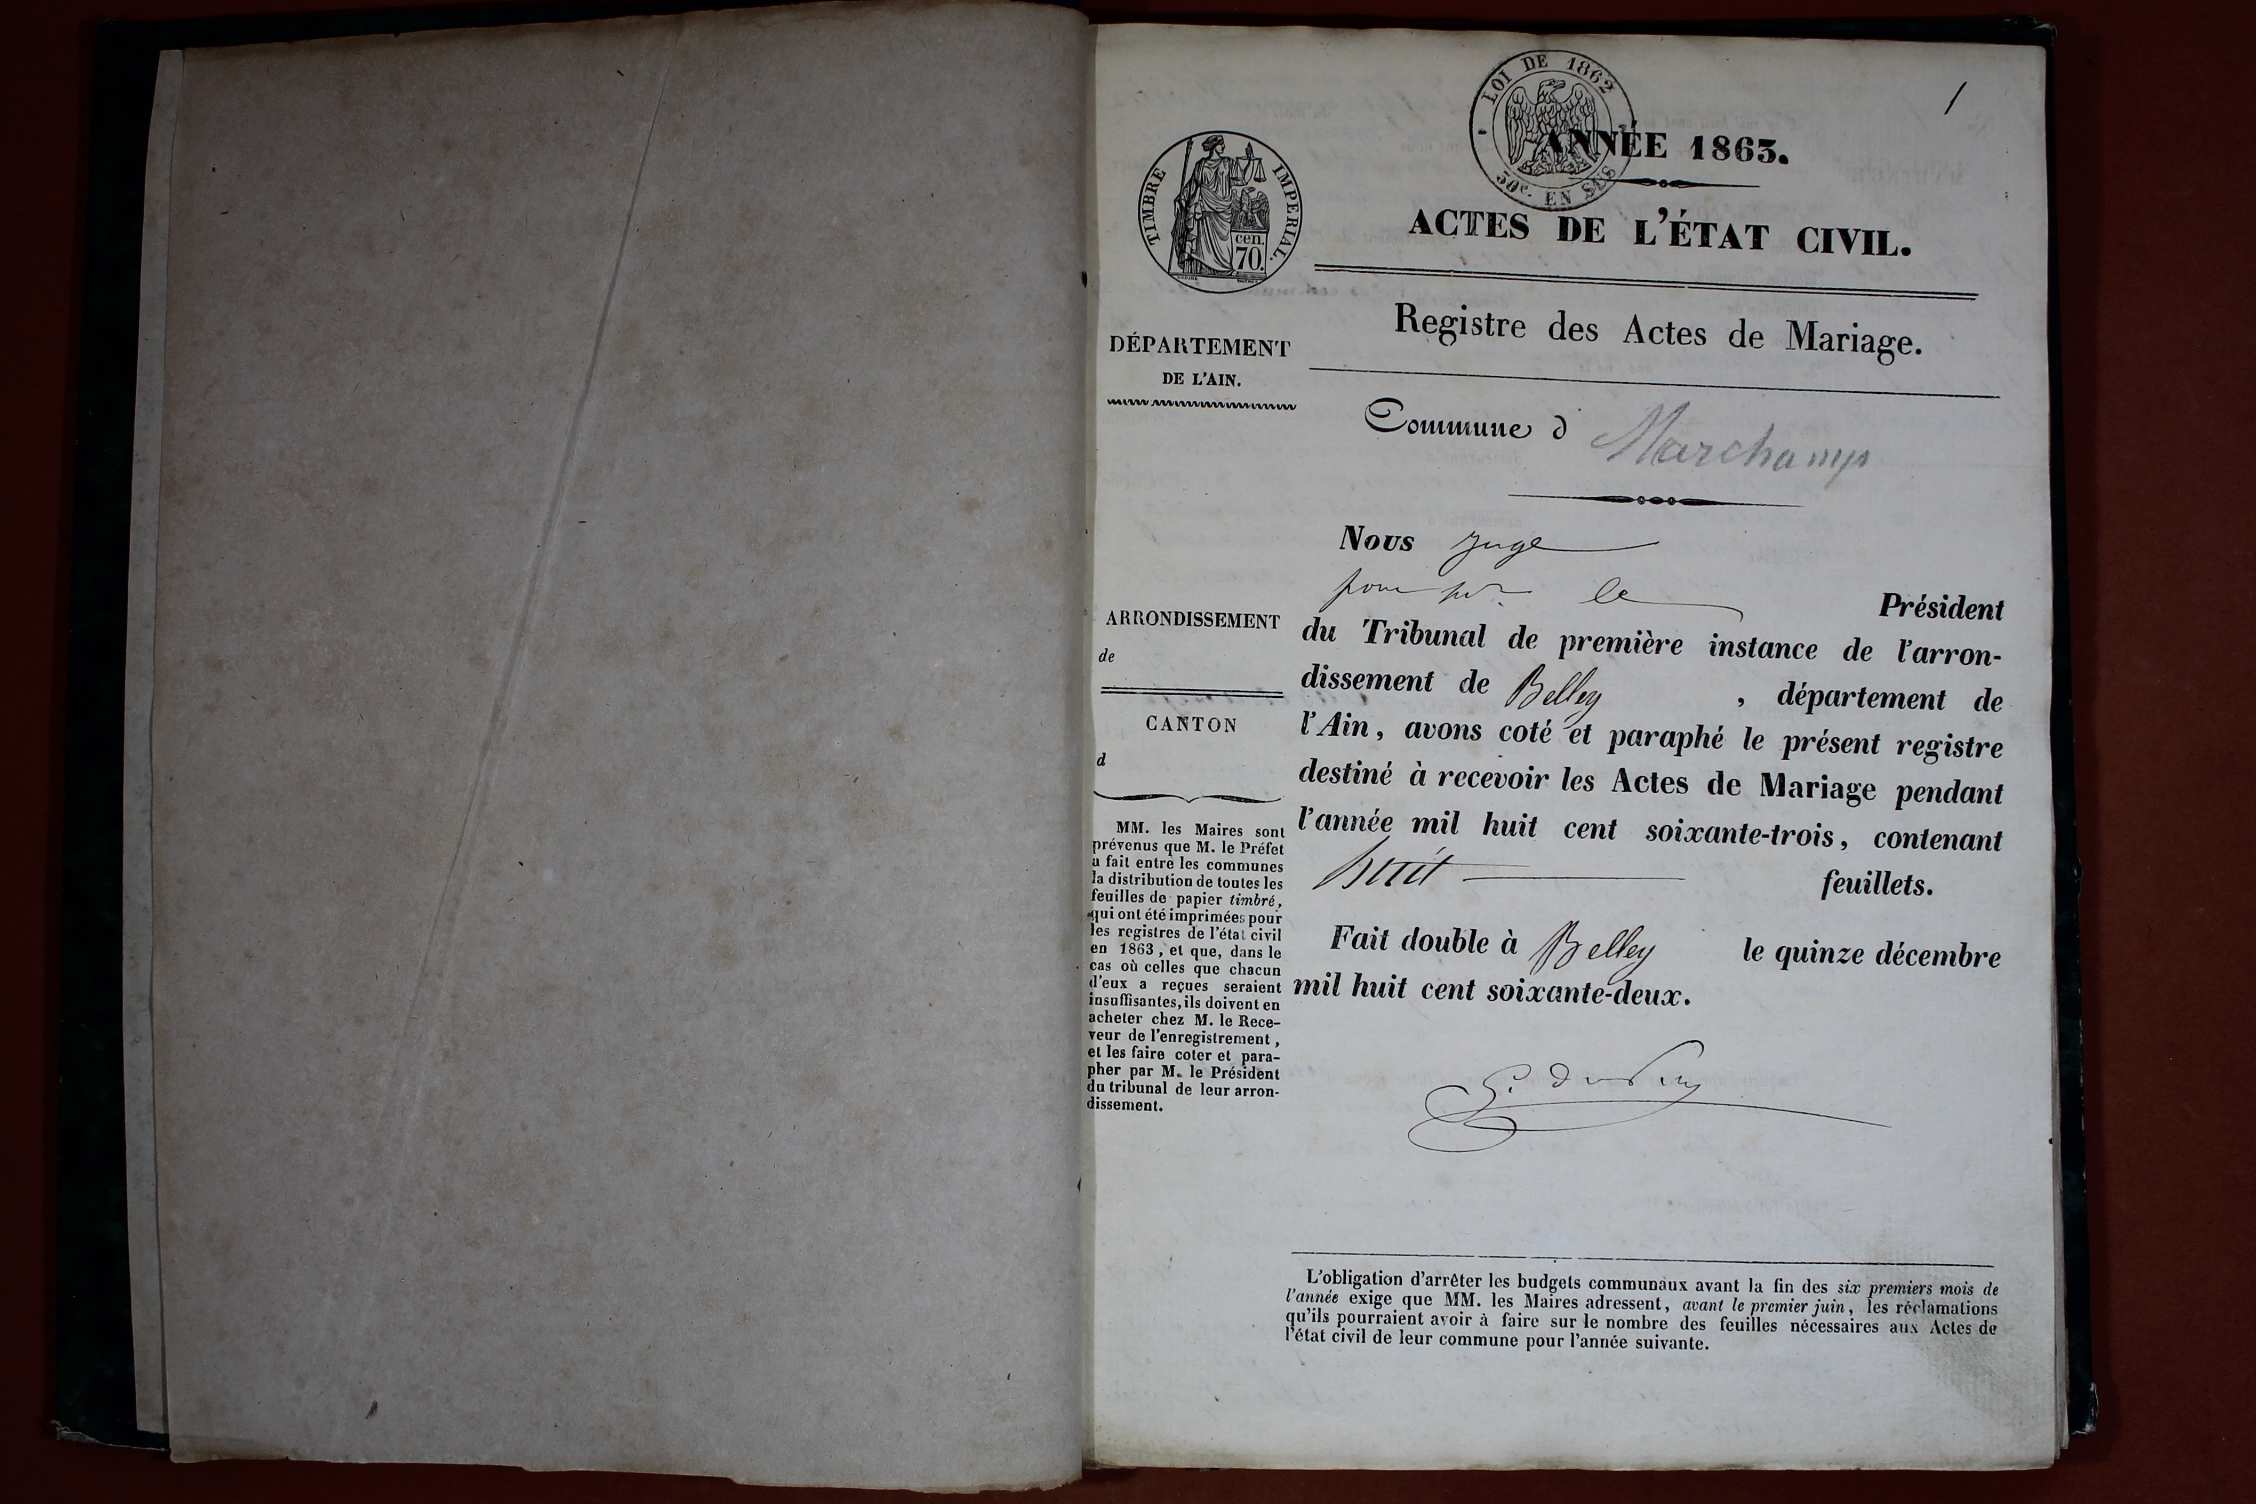 1
LOI DE 1862
50c. EN SUS
ANNÉE 1863.
TIMBRE IMPERIAL.
cen.
70.
ACTES DE L'ÉTAT CIVIL.
Registre des Actes de Mariage.
DÉPARTEMENT
DE L'AIN.
Commune d Marchamp
ARRONDISSEMENT
de
CANTON
d
MM. les Maires sont
prévenus que M. le Préfet
a fait entre les communes
la distribution de toutes les
feuilles de papier timbré,
qui ont été imprimées pour
les registres de l'état civil
en 1863, et que, dans le
cas où celles que chacun
d'eux a reçues seraient
insuffisantes, ils doivent en
acheter chez M. le Rece-
veur de l'enregistrement,
et les faire coter et para-
pher par M. le Président
du tribunal de leur arron-
dissement.
Nous juge
pour le Président
du Tribunal de première instance de l'arron-
dissement de Belley, département de
l'Ain, avons coté et paraphé le présent registre
destiné à recevoir les Actes de Mariage pendant
l'année mil huit cent soixante-trois, contenant
huit feuillets.
Fait double à Belley le quinze décembre
mil huit cent soixante-deux.
L'obligation d'arrêter les budgets communaux avant la fin des six premiers mois de
l'année exige que MM. les Maires adressent, avant le premier juin, les réclamations
qu'ils pourraient avoir à faire sur le nombre des feuilles nécessaires aux Actes de
l'état civil de leur commune pour l'année suivante.